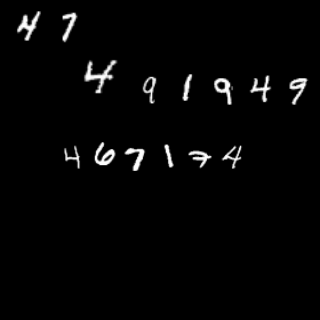 47
4919 49
467174